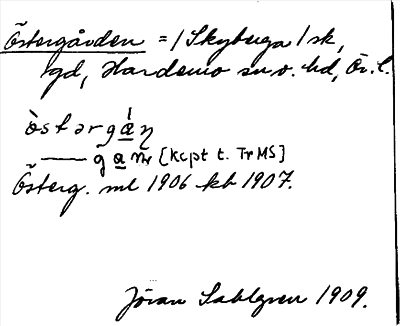 Östergården = / Skyberga / sk,
gd, Hardemo sn o. hd, Ör. l.
òstərga̲n
—— ga̲n [kcpt t. Tr MS]
Österg. ml 1906 kb 1907.
Jöran Sahlgren 1909.